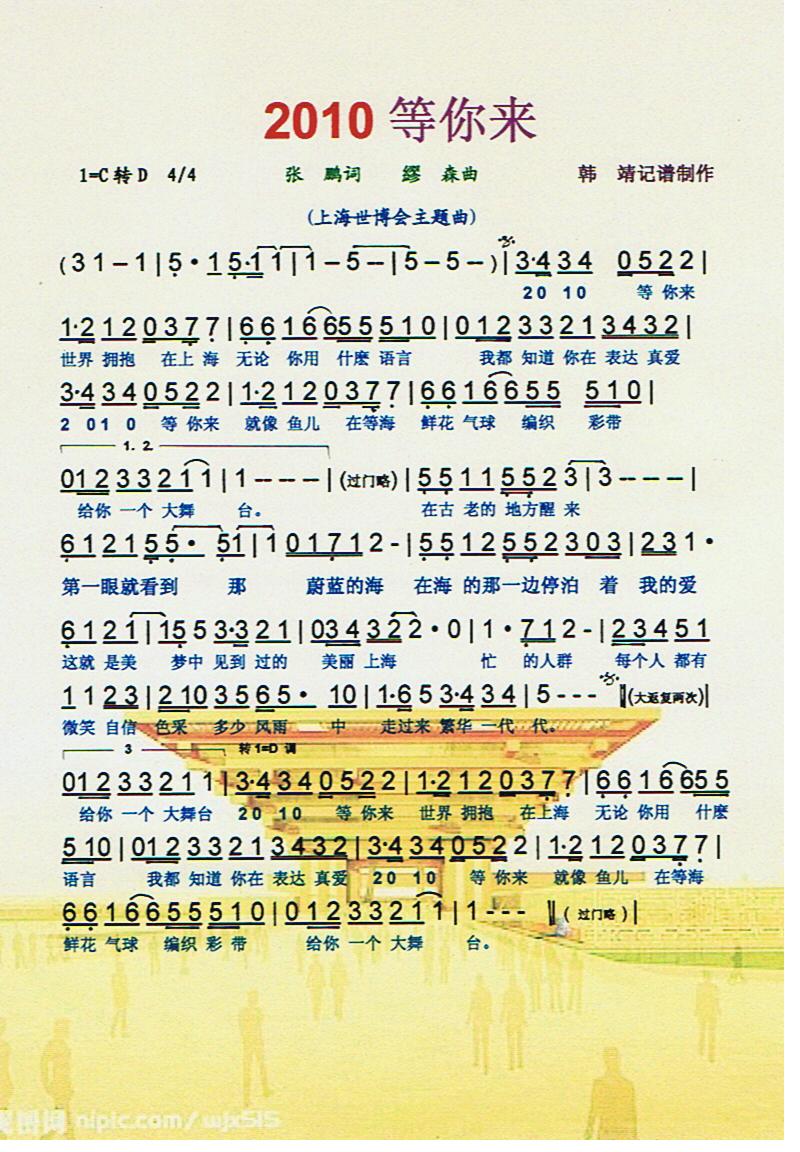 2010 等你来
1=C 转 D 4/4 张 鹏词 缪 森曲 韩 靖记谱制作
(上海世博会主题曲)
( 3 1 – 1 | 5 · 1 5·1 1 | 1 – 5 – | 5 – 5 – ) | 3·4 3 4 0 5 2 2 |
20 10 等 你来
1·2 1 2 0 3 7 7 | 6 6 1 6 6 5 5 5 1 0 | 0 1 2 3 3 2 1 3 4 3 2 |
世界 拥抱 在上 海 无论 你用 什麽 语言 我都 知道 你在 表达 真爱
3·4 3 4 0 5 2 2 | 1·2 1 2 0 3 7 7 | 6 6 1 6 6 5 5 5 1 0 |
2 01 0 等 你来 就像 鱼儿 在等海 鲜花 气球 编织 彩带
1. 2.
0 1 2 3 3 2 1 1 | 1 - - - - | (过门略) | 5 5 1 1 5 5 2 3 | 3 - - - |
给你 一个 大舞 台。 在古 老的 地方醒 来
6 1 2 1 5 5 · 5 1 | 1 0 1 7 1 2 - | 5 5 1 2 5 5 2 3 0 3 | 2 3 1 ·
第一眼就看到 那 蔚蓝的海 在海 的那一边停泊 着 我的爱
6 1 2 1 | 1 5 5 3·3 2 1 | 0 3 4 3 2 2 · 0 | 1 · 7 1 2 - | 2 3 4 5 1
这就 是美 梦中 见到 过的 美丽 上海 忙 的人群 每个人 都有
1 1 2 3 | 2 1 0 3 5 6 5 · 1 0 | 1·6 5 3·4 3 4 | 5 - - - ‖ (大返复两次) |
微笑 自信 色采 多少 风雨 中 走过来 繁华 一代 代。
3 转 1=D 调
0 1 2 3 3 2 1 1 | 3·4 3 4 0 5 2 2 | 1·2 1 2 0 3 7 7 | 6 6 1 6 6 5 5
给你 一个 大舞台 20 10 等 你来 世界 拥抱 在上海 无论 你用 什麽
5 1 0 | 0 1 2 3 3 2 1 3 4 3 2 | 3·4 3 4 0 5 2 2 | 1·2 1 2 0 3 7 7 |
语言 我都 知道 你在 表达 真爱 20 10 等 你来 就像 鱼儿 在等海
6 6 1 6 6 5 5 5 1 0 | 0 1 2 3 3 2 1 1 | 1 - - - ‖ ( 过门略 ) |
鲜花 气球 编织 彩 带 给你 一个 大舞 台。
nipic.com/wjx515